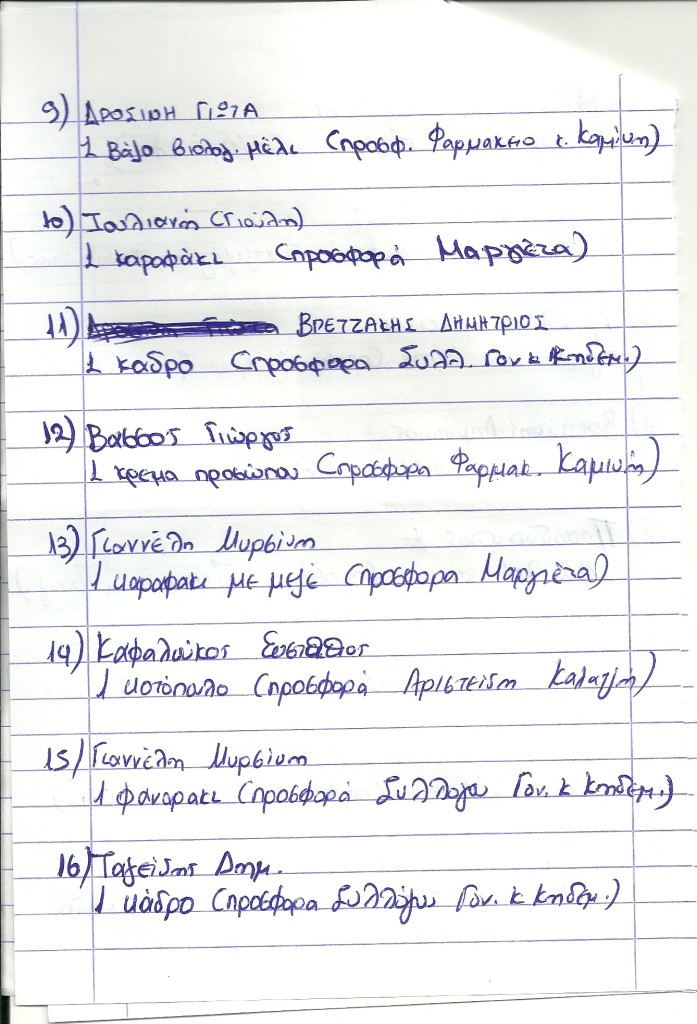 9) ΔΡΟΣΙΝΗ ΓΙΩΤΑ
1 Βάζο βιολογ. μέλι (προσφ. Φαρμακειο κ. Καμίνη)
10) Ιουλιανή (Γιούλη)
1 καραφάκι (προσφορά Μαργέτα)
11) ΒΡΕΤΖΑΚΗΣ ΔΗΜΗΤΡΙΟΣ
1 καδρο (προσφορα Συλλ. Γον. κ Κηδεμ.)
12) Βασσος Γιώργος
1 κρεμα προσώπου (προσφορα Φαρμακ. Καμινή)
13) Γιαννέλη Μυρσίνη
1 καραφακι με μεζέ (προσφορα Μαργέτα)
14) Καφαλούκος Ευσταθιος
1 κοτόπουλο (προσφορά Αριστειδη Καλατζή)
15) Γιαννέλη Μυρσίνη
1 φαναρακι (προσφορά Συλλόγου Γον. κ Κηδεμ.)
16) Ταγείδης Δημ.
1 κάδρο (προσφορα Συλλόγου Γον. κ Κηδεμ.)